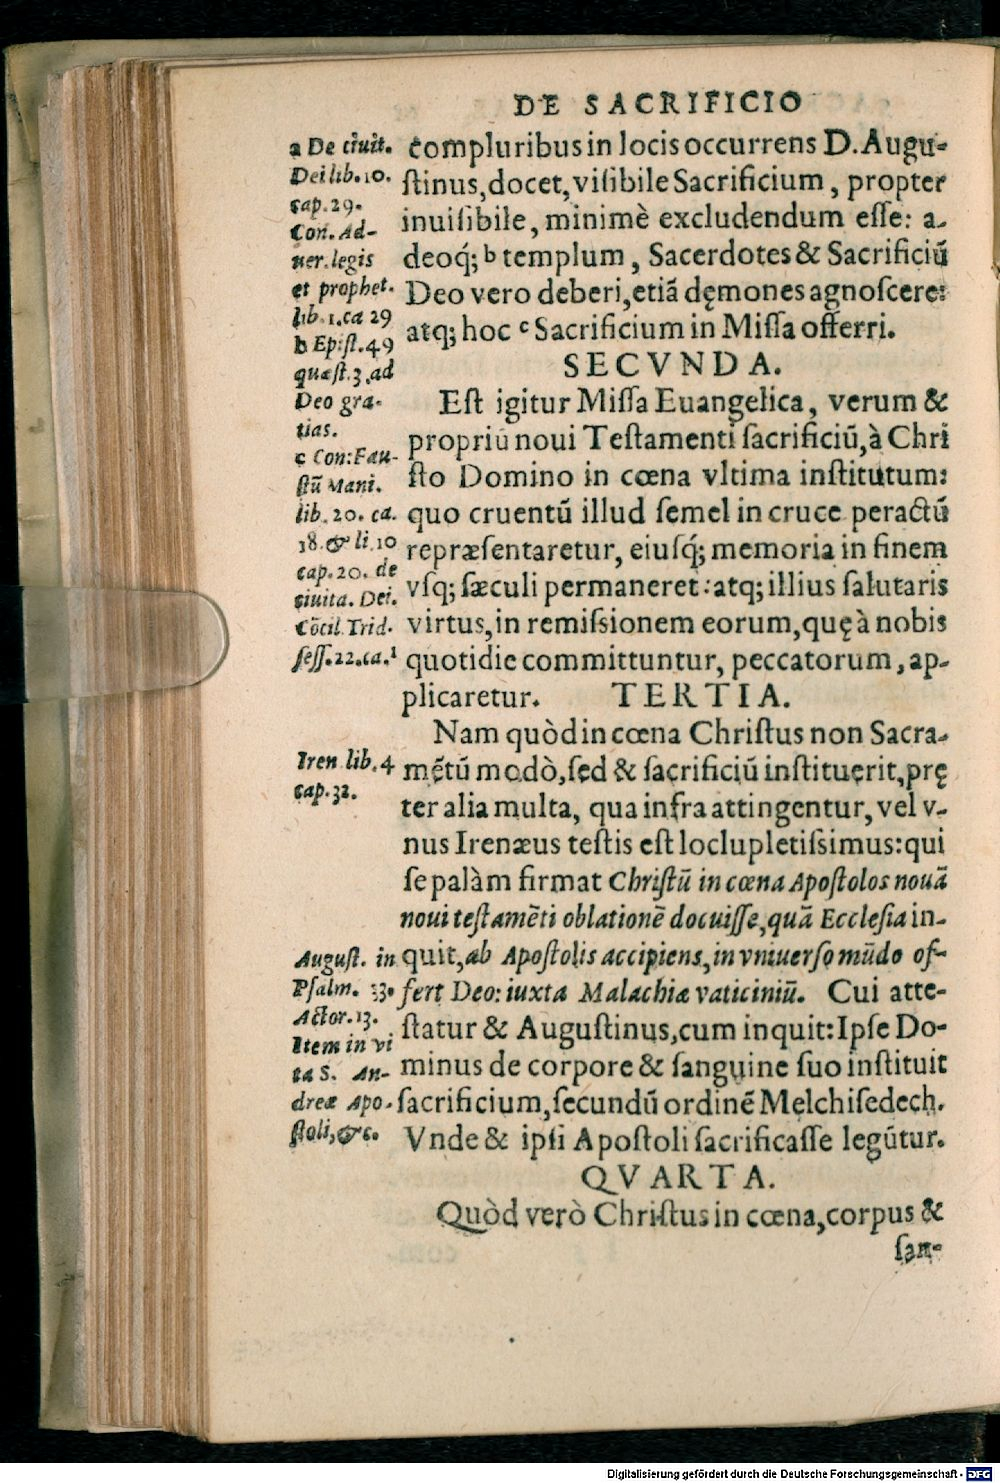 DE SACRIFICIO
a De ciuit.
Dei lib. 10.
cap. 29.
Con. Ad-
uer. legis
et prophet.
lib. 1. ca 29
b Epist. 49
quæst. 3. ad
Deo gra-
tias.
c Con: Fau-
stũ Mani.
lib. 20. ca.
18. & li. 10
cap. 20. de
ciuita. Dei.
Cõcil. Trid.
sess. 22. ca. 1
Iren. lib. 4
cap. 32.
August. in
Psalm. 33.
Actor. 13.
Item in vi
ta S. An-
dreæ Apo-
stoli, &c.
compluribus in locis occurrens D. Augu-
ſtinus, docet, viſibile Sacrificium, propter
inuiſibile, minimè excludendum eſſe: a-
deoq́; b templum, Sacerdotes & Sacrificiũ
Deo vero deberi, etiã dęmones agnoſcere:
atq; hoc c Sacrificium in Miſſa offerri.
SECVNDA.
Eſt igitur Miſſa Euangelica, verum &
propriũ noui Teſtamenti ſacrificiũ, à Chri
ſto Domino in cœna vltima inſtitutum:
quo cruentũ illud ſemel in cruce peractũ
repræſentaretur, eiuſq́; memoria in finem
vſq; ſæculi permaneret: atq; illius ſalutaris
virtus, in remiſsionem eorum, quę à nobis
quotidie committuntur, peccatorum, ap-
plicaretur. TERTIA.
Nam quòd in cœna Chriſtus non Sacra-
mẽtũ modò, ſed & ſacrificiũ inſtituerit, prę
ter alia multa, qua infra attingentur, vel v-
nus Irenæus teſtis eſt loclupletiſsimus: qui
ſe palàm firmat Chriſtũ in cœna Apoſtolos nouã
noui teſtamẽti oblationẽ docuiſſe, quã Eccleſia in-
quit, ab Apoſtolis accipiens, in vniuerſo mũdo of-
fert Deo: iuxta Malachiæ vaticiniũ. Cui atte-
ſtatur & Auguſtinus, cum inquit: Ipſe Do-
minus de corpore & ſanguine ſuo inſtituit
ſacrificium, ſecundũ ordinẽ Melchiſedech.
Vnde & ipſi Apoſtoli ſacrificaſſe legũtur.
QVARTA.
Quòd verò Chriſtus in cœna, corpus &
ſan-
Digitalisierung gefördert durch die Deutsche Forschungsgemeinschaft - DFG